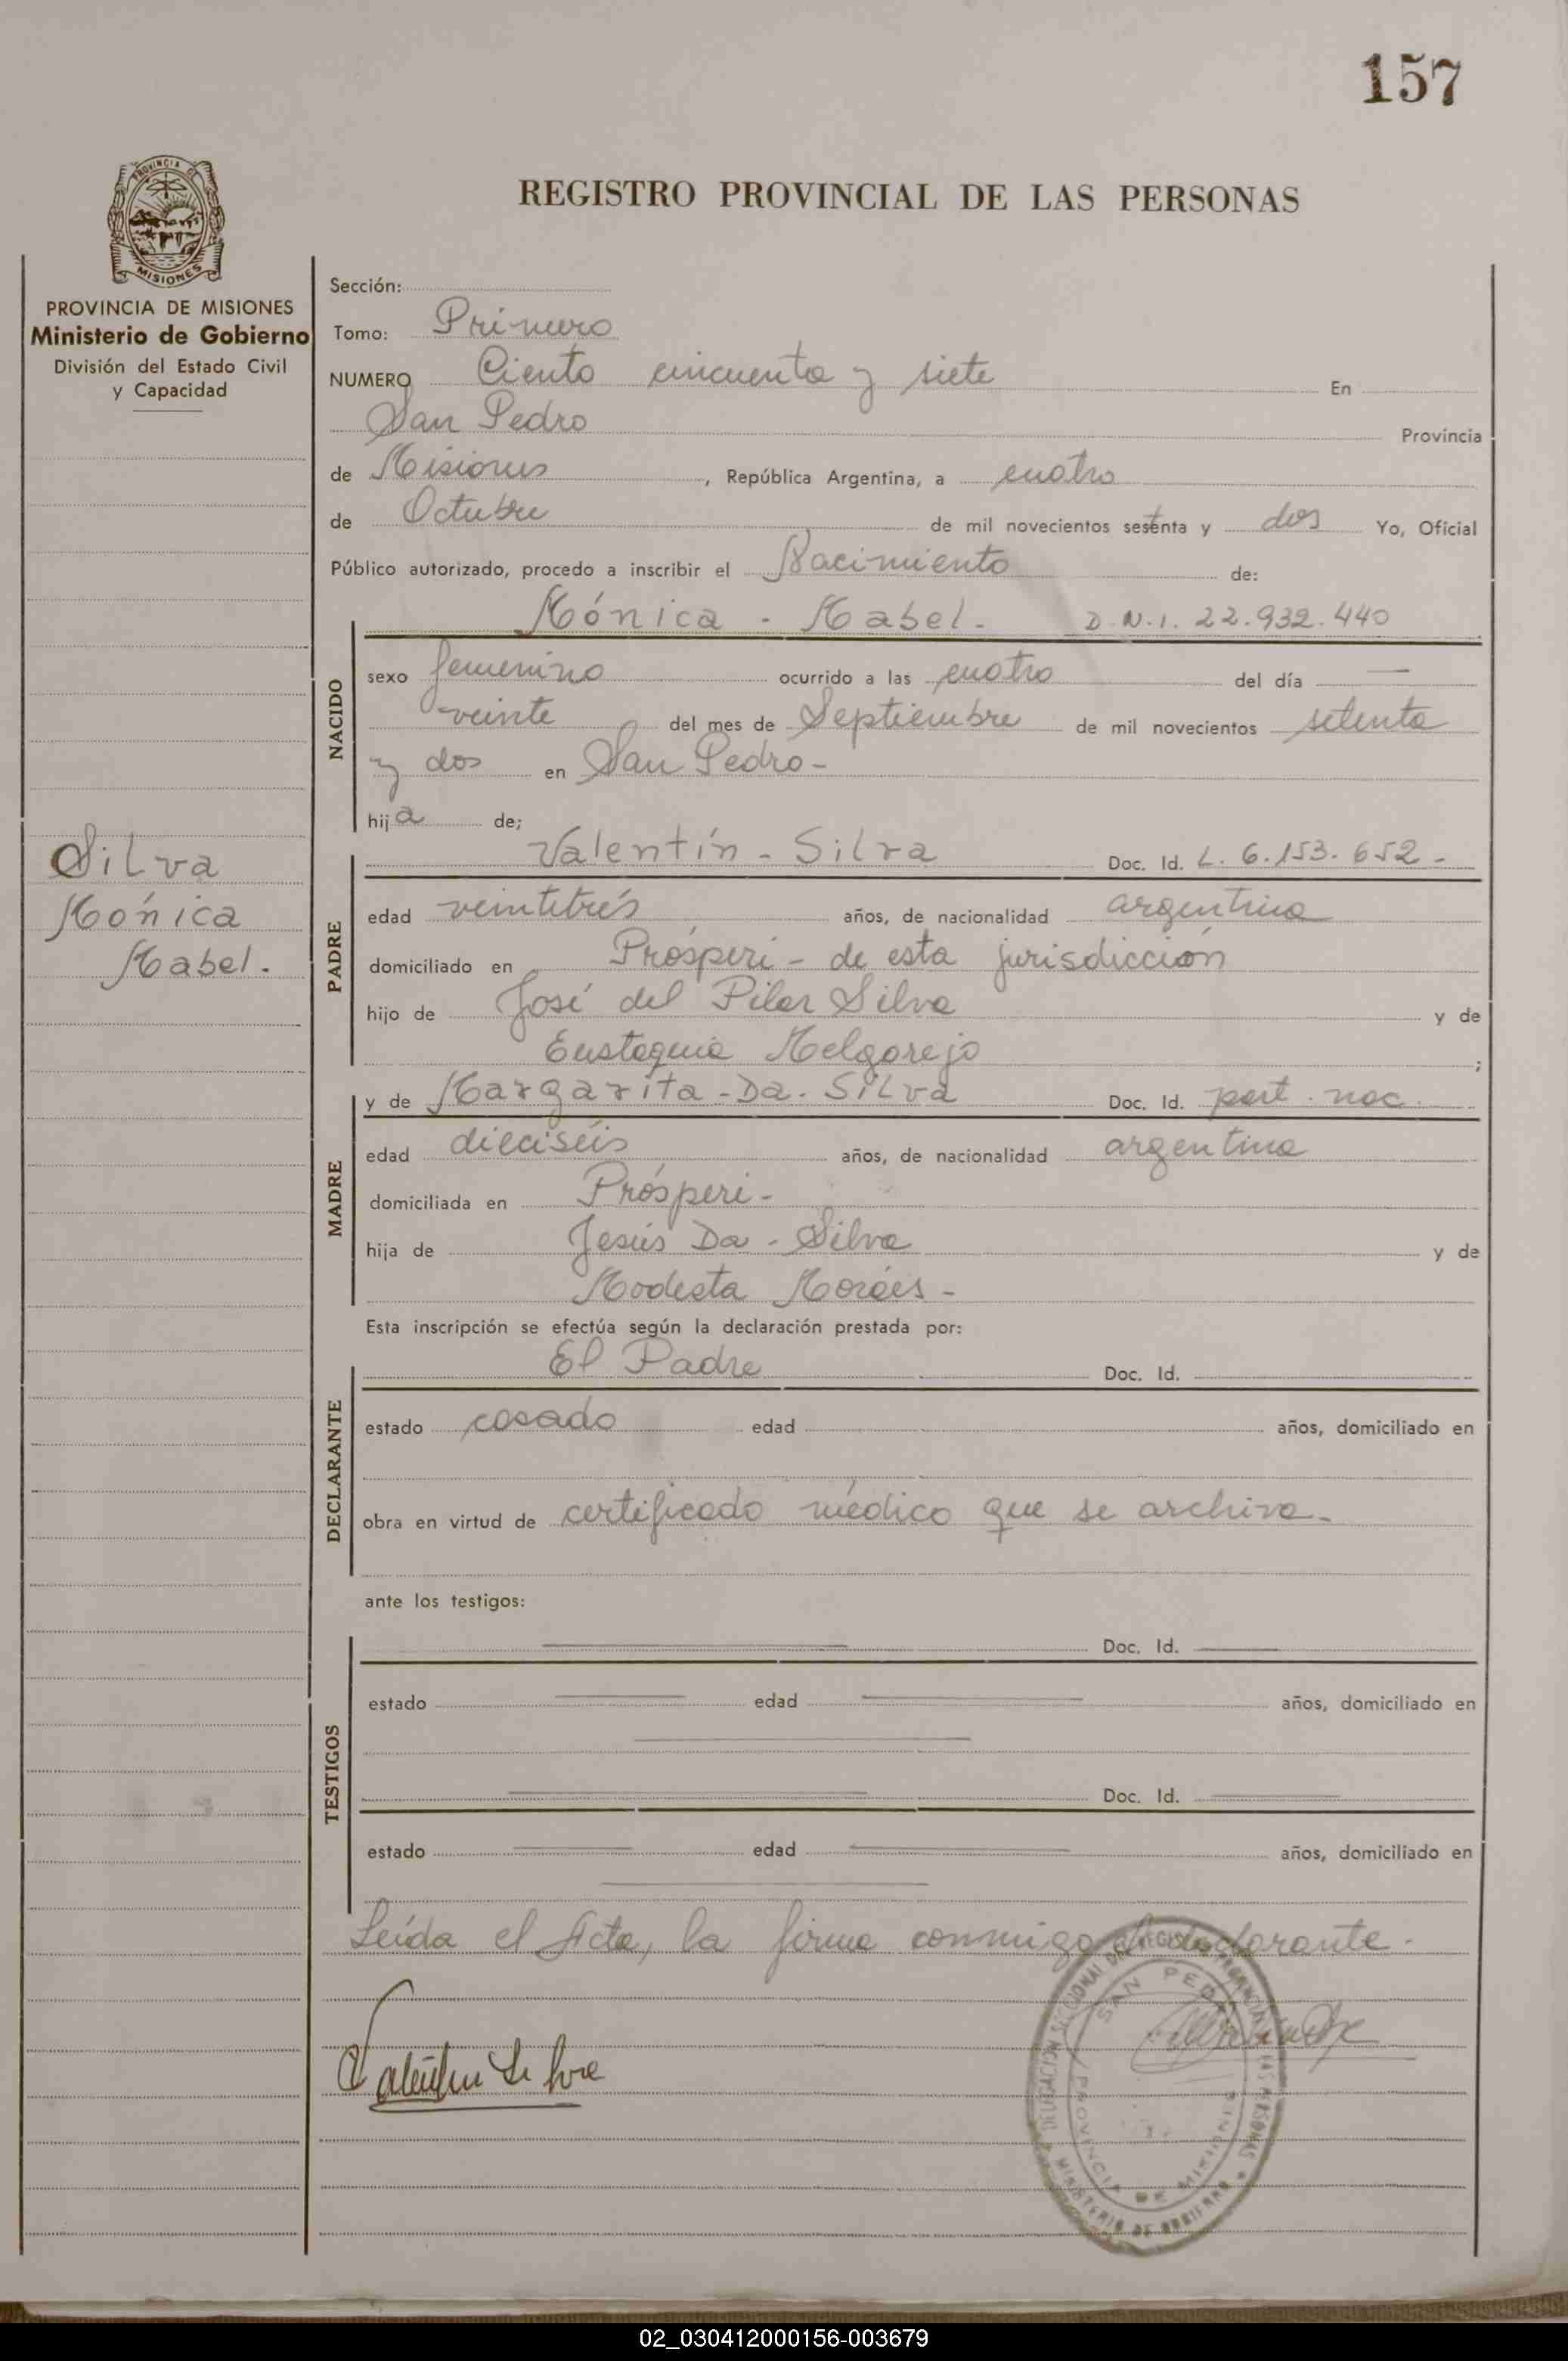 157
REGISTRO PROVINCIAL DE LAS PERSONAS
PROVINCIA DE MISIONES
Ministerio de Gobierno
División del Estado Civil
y Capacidad
Silva
Mónica
Mabel.
Sección:
Tomo: Primero
NUMERO Ciento cincuenta y siete En
San Pedro Provincia
de Misiones, República Argentina, a cuatro
de Octubre de mil novecientos setenta y dos Yo, Oficial
Público autorizado, procedo a inscribir el Nacimiento de:
NACIDO
Mónica - Mabel. D.N.I. 22.932.440
sexo femenino ocurrido a las cuatro del día —
veinte del mes de Septiembre de mil novecientos setenta
y dos en San Pedro-
hija de;
PADRE
Valentín - Silva Doc. Id. L. 6.153.652-
edad veintitrés años, de nacionalidad argentina
domiciliado en Prósperi - de esta jurisdicción
hijo de José del Pilar Silva y de
Eustaquia Melgarejo ;
MADRE
y de Margarita - Da - Silva Doc. Id. part. nac.
edad dieciséis años, de nacionalidad argentina
domiciliada en Prósperi-
hija de Jesús Da - Silva y de
Modesta Moráis-
Esta inscripción se efectúa según la declaración prestada por:
DECLARANTE
El Padre Doc. Id.
estado casado edad años, domiciliado en
obra en virtud de certificado médico que se archiva-
ante los testigos:
TESTIGOS
Doc. Id.
estado edad años, domiciliado en
Doc. Id.
estado edad años, domiciliado en
Leída el Acta, la firma conmigo el declarante.
Valentín Silva
DELEGACION SECCIONAL DEL REGISTRO PROVINCIAL DE LAS PERSONAS
SAN PEDRO
PROVINCIA DE MISIONES
MINISTERIO DE GOBIERNO
02_030412000156-003679